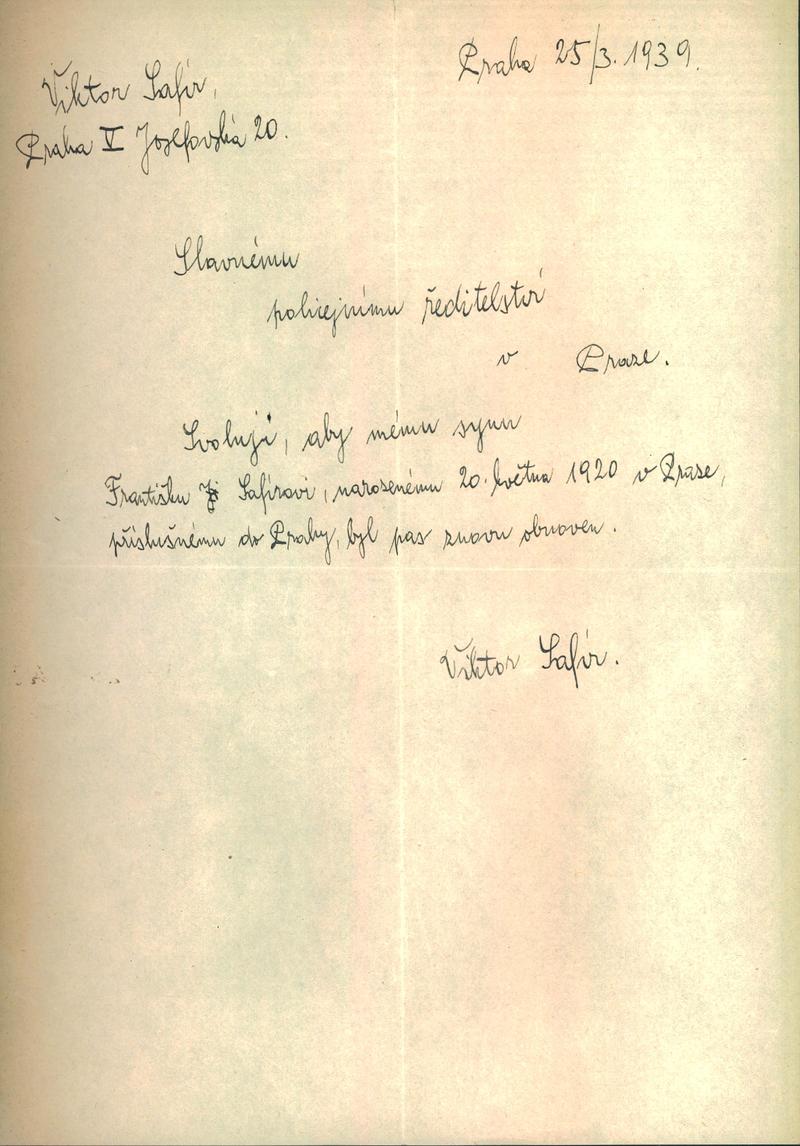 Praha 25/3. 1939.
Viktor Safír,
Praha V Josefovská 20.
Slavnému
policejnímu ředitelství
v Praze.
Svoluji, aby mému synu
Františku Safírovi, narozenému 20. května 1920 v Praze,
příslušnému do Prahy, byl pas znovu obnoven.
Viktor Safír.